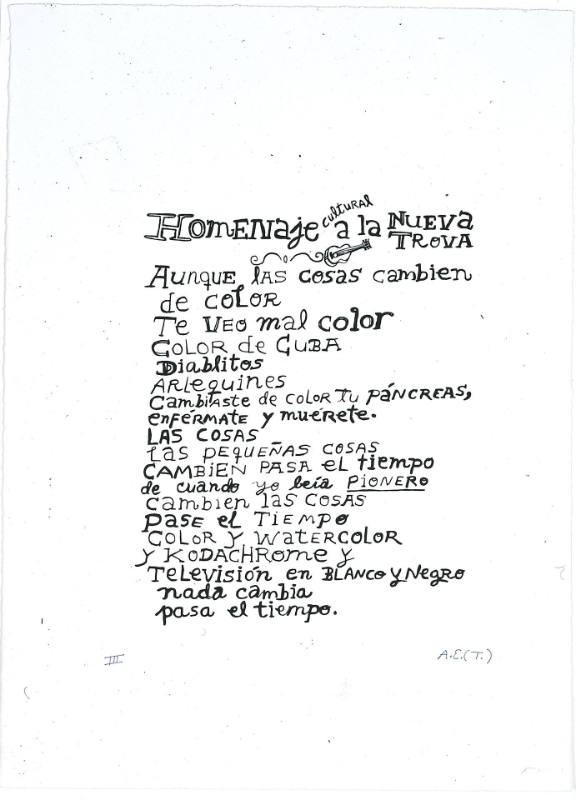 Homenaje cultural a la Nueva Trova
Aunque las cosas cambien
de color
Te veo mal color
Color de Cuba
Diablitos
Arlequines
Cambiaste de color tu páncreas,
enférmate y muérete.
LAS COSAS
Las pequeñas cosas
CAMBIEN PASA el tiempo
de cuando yo leía PIONERO
Cambien las COSAS
Pase el Tiempo
Color y Watercolor
y KODACHRome y
Televisión en BLANCO y Negro
nada cambia
pasa el tiempo.
III
A.E.(T.)